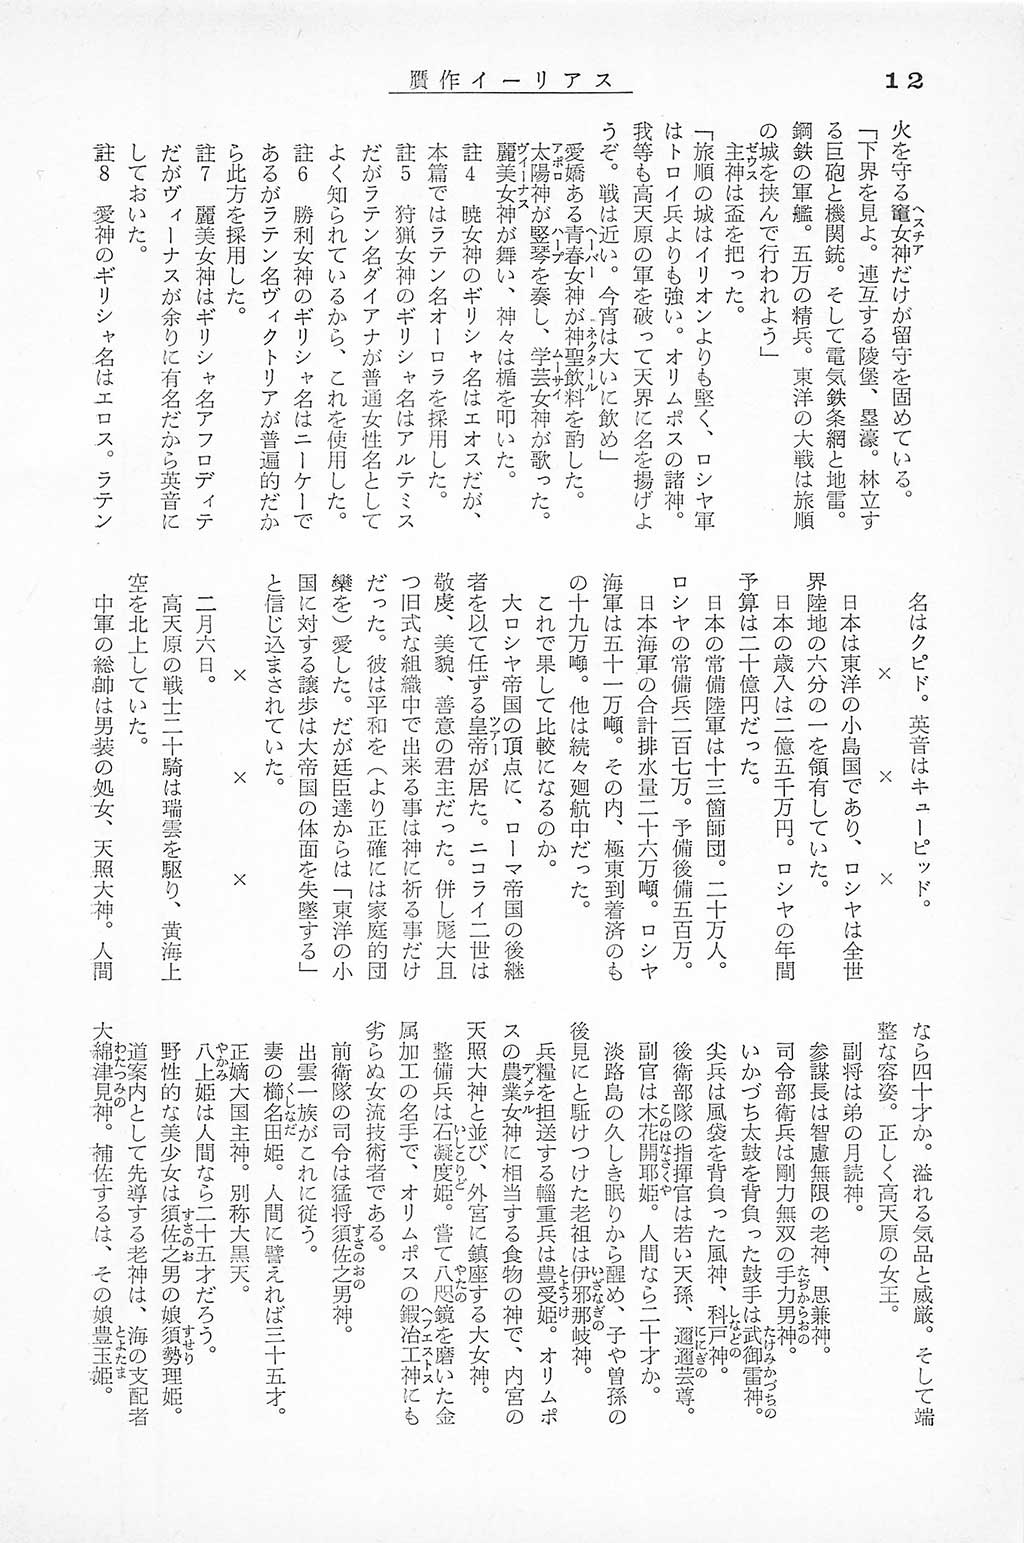 贋作イーリアス
12
火を守る竃女神だけが留守を固めている。
「下界を見よ。連互する陵堡、塁濠。林立す
る巨砲と機関銃。そして電気鉄条網と地雷。
鋼鉄の軍艦。五万の精兵。東洋の大戦は旅順
の城を挟んで行われよう」
主神は盃を把った。
「旅順の城はイリオンよりも堅く、ロシヤ軍
はトロイ兵よりも強い。オリムポスの諸神。
我等も高天原の軍を破って天界に名を揚げよ
うぞ。戦は近い。今宵は大いに飲め」
愛嬌ある青春女神が神聖飲料を酌した。
太陽神が竪琴を奏し、学芸女神が歌った。
麗美女神が舞い、神々は楯を叩いた。
註4　暁女神のギリシャ名はエオスだが、
本篇ではラテン名オーロラを採用した。
註5　狩猟女神のギリシャ名はアルテミス
だがラテン名ダイアナが普通女性名として
よく知られているから、これを使用した。
註6　勝利女神のギリシャ名はニーケーで
あるがラテン名ヴィクトリアが普遍的だか
ら此方を採用した。
註7　麗美女神はギリシャ名アフロディテ
だがヴィーナスが余りに有名だから英音に
しておいた。
註8　愛神のギリシャ名はエロス。ラテン
名はクピド。英音はキューピッド。
×　×　×
日本は東洋の小島国であり、ロシヤは全世
界陸地の六分の一を領有していた。
日本の歳入は二億五千万円。ロシヤの年間
予算は二十億円だった。
日本の常備陸軍は十三箇師団。二十万人。
ロシヤの常備兵二百七万。予備後備五百万。
日本海軍の合計排水量二十六万噸。ロシヤ
海軍は五十一万噸。その内、極東到着済のも
の十九万噸。他は続々廻航中だった。
これで果して比較になるのか。
大ロシヤ帝国の頂点に、ローマ帝国の後継
者を以て任ずる皇帝が居た。ニコライ二世は
敬虔、美貌、善意の君主だった。併し尨大且
つ旧式な組織中で出来る事は神に祈る事だけ
だった。彼は平和を（より正確には家庭的団
欒を）愛した。だが廷臣達からは「東洋の小
国に対する譲歩は大帝国の体面を失墜する」
と信じ込まされていた。
×　×　×
二月六日。
高天原の戦士二十騎は瑞雲を駆り、黄海上
空を北上していた。
中軍の総帥は男装の処女、天照大神。人間
なら四十才か。溢れる気品と威厳。そして端
整な容姿。正しく高天原の女王。
副将は弟の月読神。
参謀長は智慮無限の老神、思兼神。
司令部衛兵は剛力無双の手力男神。
いかづち太鼓を背負った鼓手は武御雷神。
尖兵は風袋を背負った風神、科戸神。
後衛部隊の指揮官は若い天孫、邇邇芸尊。
副官は木花開耶姫。人間なら二十才か。
淡路島の久しき眠りから醒め、子や曽孫の
後見にと駈けつけた老祖は伊邪那岐神。
兵糧を担送する輜重兵は豊受姫。オリムポ
スの農業女神に相当する食物の神で、内宮の
天照大神と並び、外宮に鎮座する大女神。
整備兵は石凝度姫。嘗て八咫鏡を磨いた金
属加工の名手で、オリムポスの鍛冶工神にも
劣らぬ女流技術者である。
前衛隊の司令は猛将須佐之男神。
出雲一族がこれに従う。
妻の櫛名田姫。人間に譬えれば三十五才。
正嫡大国主神。別称大黒天。
八上姫は人間なら二十五才だろう。
野性的な美少女は須佐之男の娘須勢理姫。
道案内として先導する老神は、海の支配者
大綿津見神。補佐するは、その娘豊玉姫。